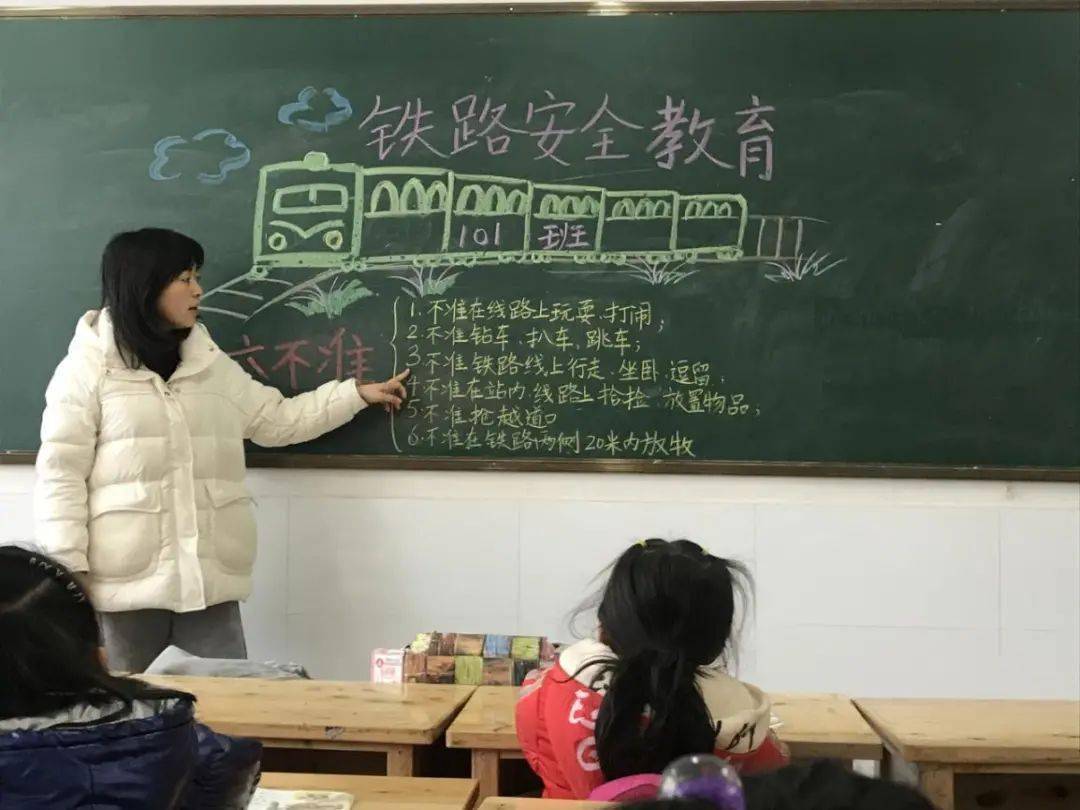 铁路安全教育
101 班
六不准
1. 不准在线路上玩耍、打闹；
2. 不准钻车、扒车、跳车；
3. 不准铁路线上行走、坐卧、逗留；
4. 不准在站内、线路上拾捡、放置物品；
5. 不准抢越道口
6. 不准在铁路两侧20米内放牧